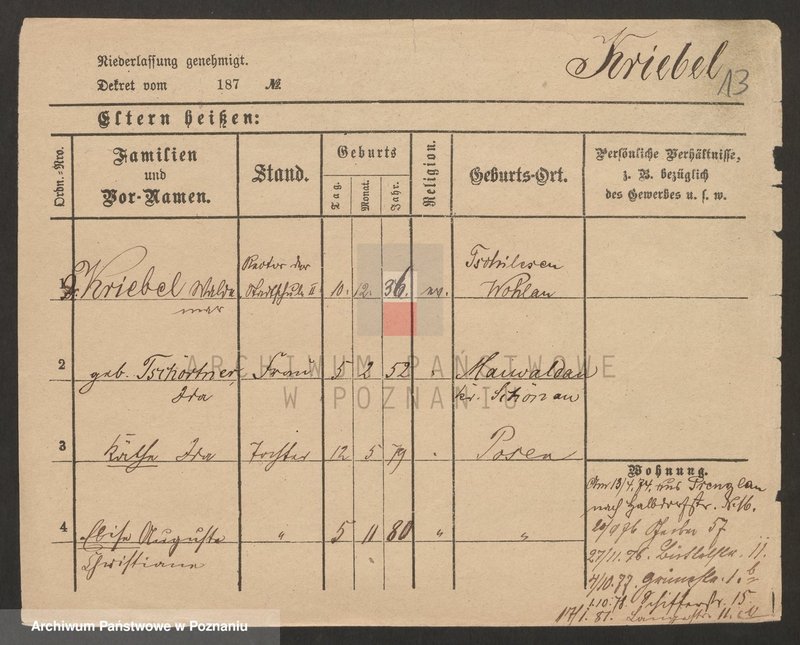 Niederlassung genehmigt.
Dekret vom 187 №
Kriebel
13
Eltern heißen:
Ordn.-Nro.
Familien
und
Vor-Namen.
Stand.
Geburts
Tag.
Monat.
Jahr.
Religion.
Geburts-Ort.
Persönliche Verhältnisse,
z. B. bezüglich
des Gewerbes u. s. w.
1
Kriebel Walde
mar
Rector der
Stadtschule II
10. 12. 36. ev.
Wohlau
2
geb. Tschörtner,
Ida
Frau 5 2 52 "
Maiwaldau
Kr. Schönau
3
Käthe Ida
Tochter 12 5 79 "
Posen
4
Elise Auguste
Christiane
" 5 11 80 " "
Wohnung.
Am 13/4. 74. aus Prenzlau
nach Halbdorfstr. N. 16.
57
27/11. 76. 11.
4/10. 77. Grünestr. 1. b
1.10. 78. Schifferstr. 15.
17/1. 81. Langestr. 11.
ARCHIWUM PAŃSTWOWE
W POZNANIU
Archiwum Państwowe w Poznaniu